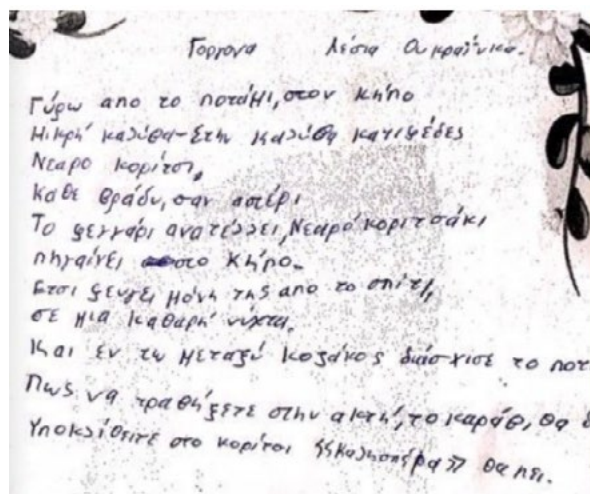 Γοργονα Λέσια Ουκραΐνκα.
Γύρω απο το ποτάμι, στον κήπο
Μικρή καλύβα - Στην καλύβα
Νεαρο κορίτσι,
Καθε βράδυ, σαν αστέρι
Το φεγγάρι ανατέλλει, Νεαρό κοριτσάκι
πηγαίνει στο κήπο.
Ετσι φευγει μόνη της απο το σπίτι,
σε μια καθαρή νύχτα.
Και εν τω μεταξύ κοζάκος διάσχισε το ποτ
Πως να τραβήξετε στην ακτή, το καράβ, θα
Υποκλιθειτε στο κορίτσι «Καλησπέρα» θα πει.